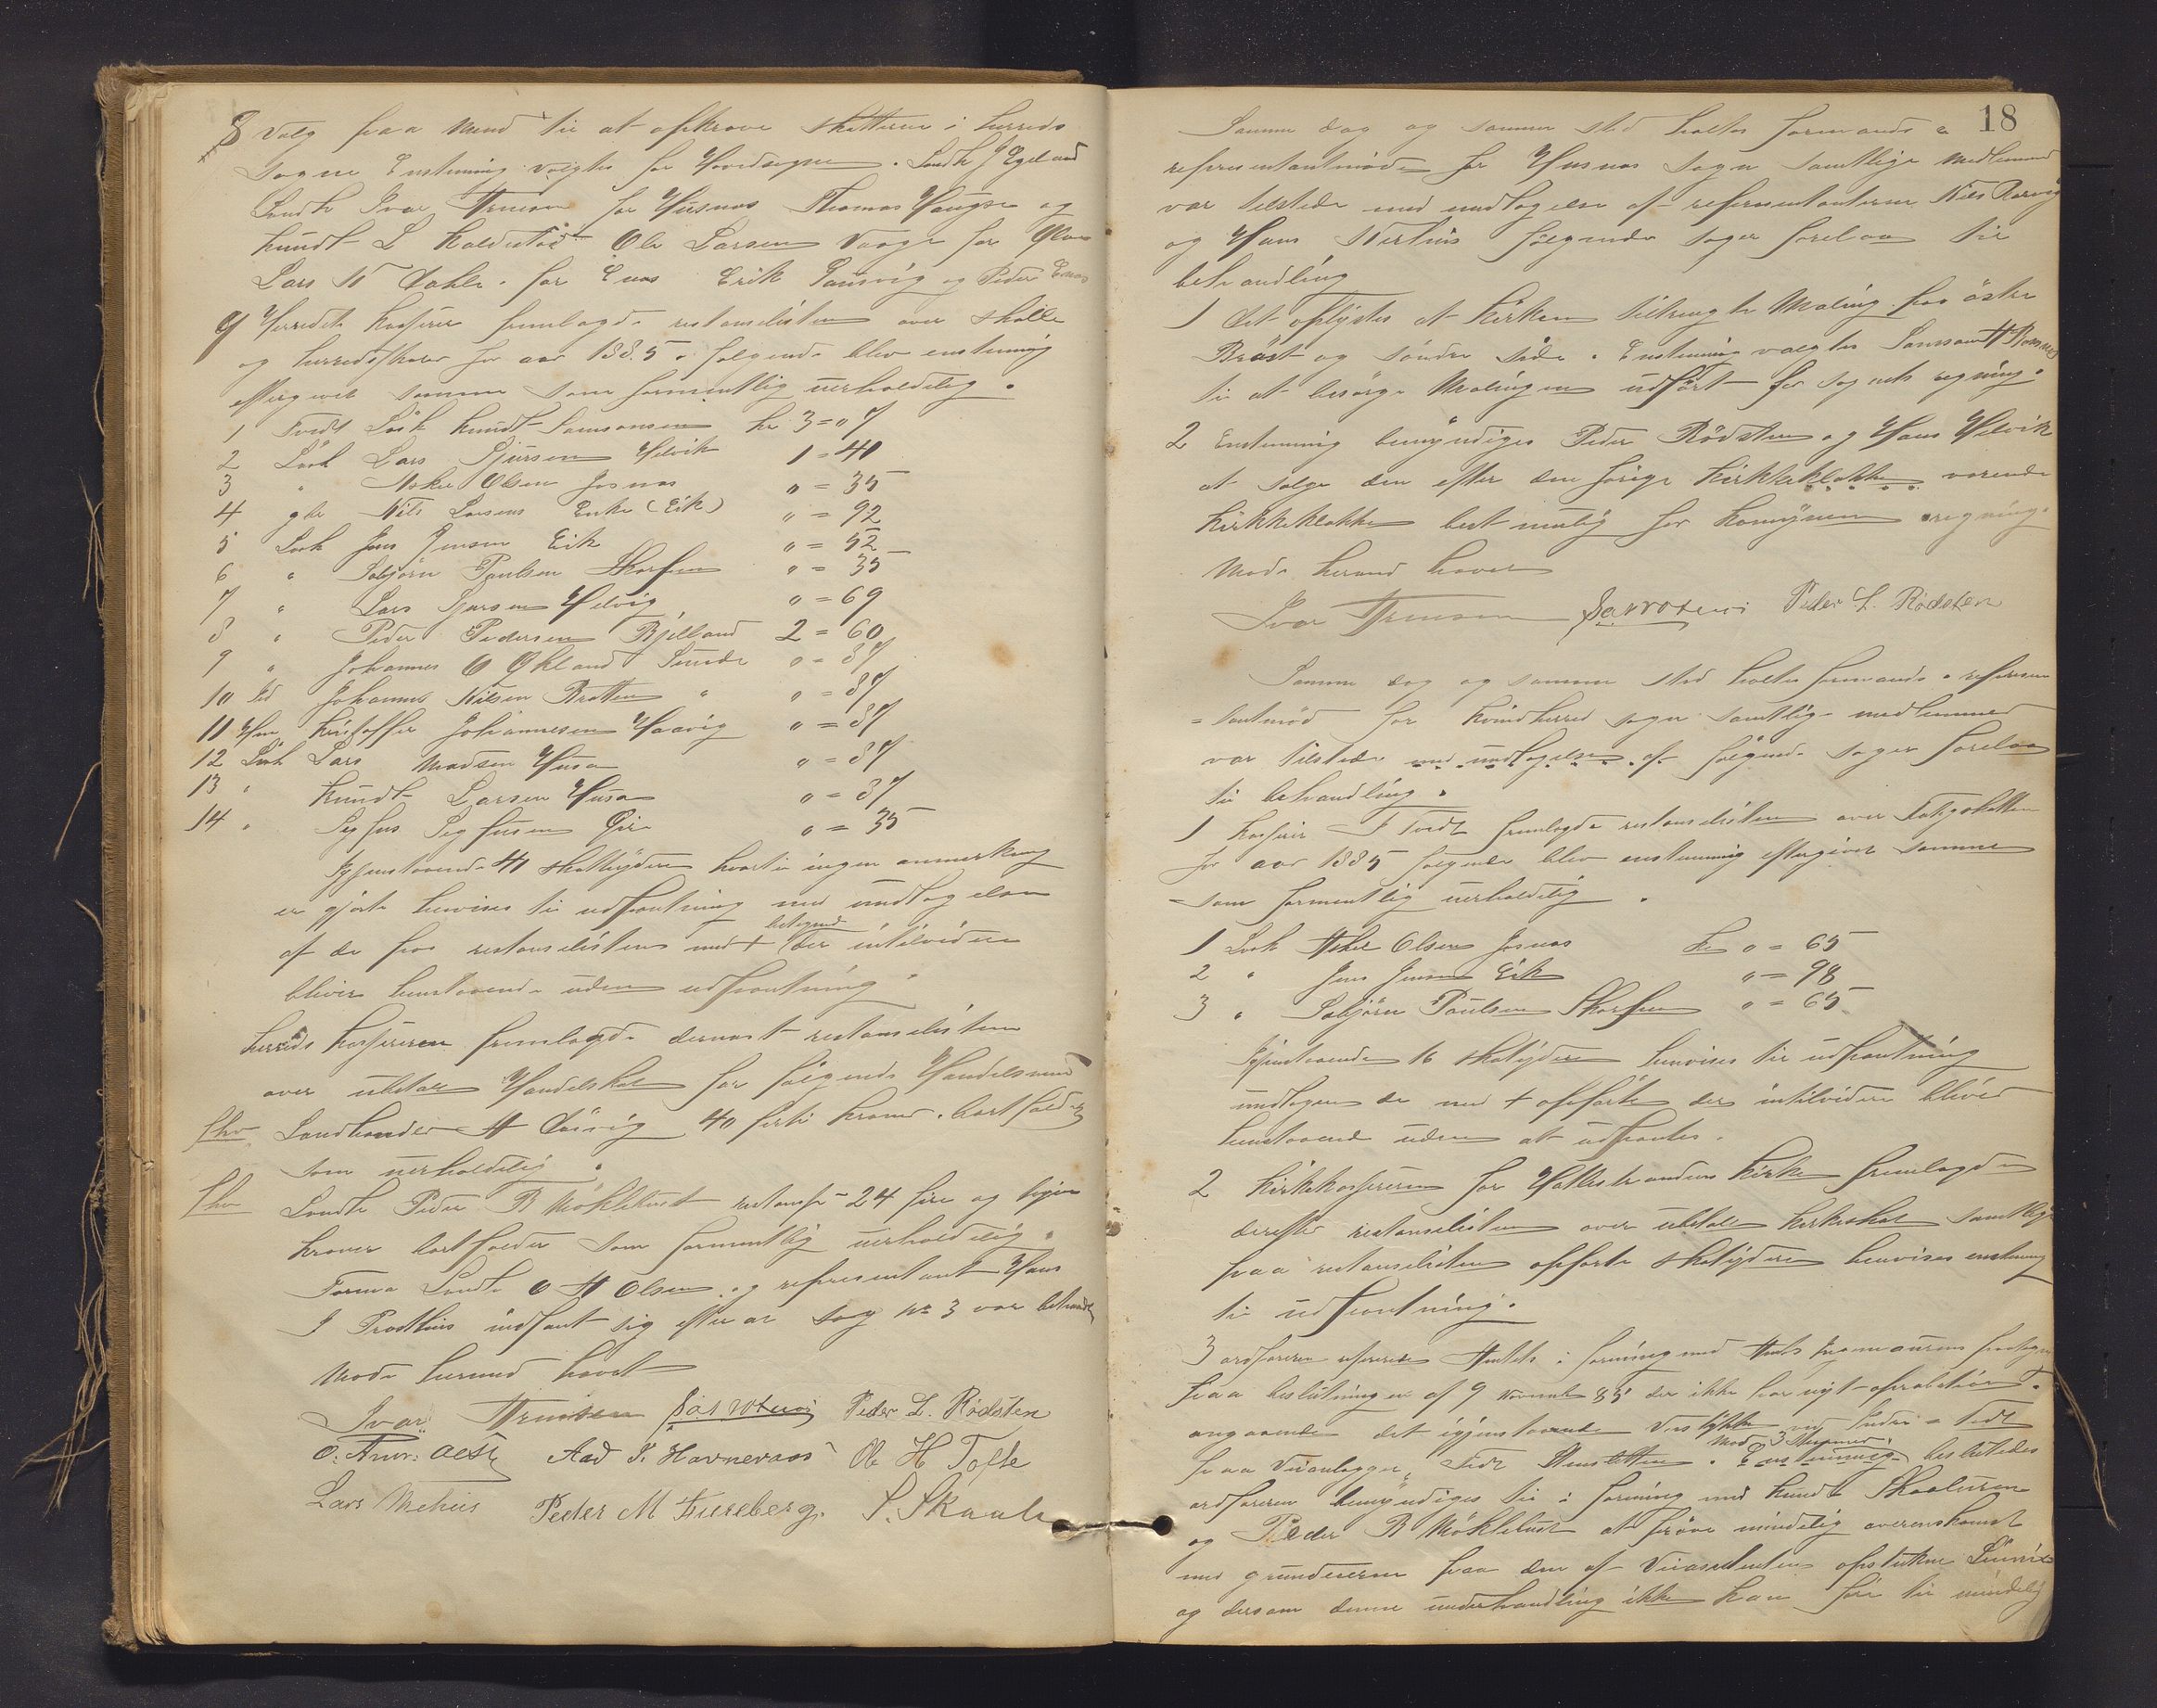 8 Valg paa Mend til at opkræve skatterne i herreds
sogne Enstemmig valgtes for Hovedsognen. Lendk J Egeland
Lendk Ivar Arneson for Husnes Thomas Haugse og
Knudt L Holdestød Ole Larsen Vaage for
Lars N Dahle. for Enes Erik Sausvig og Peder Enes
9 Herreds kasserer fremlagde restanselisten over skolle
og herredsskat for aar 1885. følgende blev enstemmig
eftergivet samme som formentlig uerholdelig.
1 Knudt Samsonsen kr 3 = 07
2 Lars Sjursen Helvik 1 = 40
3 " Aske Olsen Josnes " = 35
4 gbr Nils Larsens Enke (Eik) " = 92
5 Jens Jensen Eik " = 52
6 " Sæbjørn Poulsen Skorpen " = 35
7 " Lars Sjursen Helvig " = 69
8 " Peder Pedersen Bjelland 2 = 60
9 " Johannes O Økland Sunde " = 87
10 Johannes Nilsen Bratten " " = 87
11 Kristoffer Johannesen Haavig " = 87
12 Lars Madsen Husa " = 87
13 " Knudt Larsen Husa " = 87
14 " Segfus Segfusen " = 35
Igjenstaaende 40 skatteydere hvortil ingen anmerkning
er gjort henvises til udpantning med undtagelse
af de paa restanselisten med + betegnede der intilvidere
bliver henstaaende uden udpantning
herreds kassereren fremlagde dernæst restanselisten
over ubetalt Handelskat for følgende Handelsmend
Landhandler A Døsvig 40 firti kroner. bortfalder
som uerholdelig.
Lendk Peder R Møklebust restanse 24 fire og tyve
kroner bortfalder som formentlig uerholdelig.
Forma Lendk O A Olsen og representant Hans
J Presthus indfant sig efter at sag No 3 var behandlet
Møde hermed hævet
Ivar Arneson Peder L. Rødsten
Aad P. Havneraas Ole H Tofte
Lars Mehus Peder M Fureberg. S. Skaale
18
Samme dag og samme sted holtes formands &
representantmøde for Husnes sogn samtlige medlemmer
var tilstede med undtagelse af representanterne Nils Rørvig
og Hans følgende sager forelaa til
behandling
1 Det oplystes at Kirken tiltrengte Maling paa østre
Brøst og søndre side. Enstemmig valgtes Samson H
til at besørge Malingen udført for sognets regning.
2 Enstemmig bemyndiges Peder Rødsten og Hans Helvik
at selge den efter den forige kirkeklokke værende
kirkeklokke best mulig for komynens regning.
Møde hermed hævet
Ivar Arneson Peder L. Rødsten
Samme dag og samme sted holtes formands & represen
= tantmød for Kvindherred sogn samtlige medlemmer
var tilstede med undtagelse af følgende sager forelaa
til behandling.
1 Kasserer J Tvedt fremlagde restanselisten over
for aar 1885 følgende blev enstemmig eftergivet samme
= som formentlig uerholdelig.
1 Aske Olsen Josnes kr " = 65
2 " Jens Jensen Eik " = 98
3 " Sæbjørn Poulsen Skorpen " = 65
Igjenstaaende 16 skatydere henvises til udpantning
undtagen de med + opførte der intilvidere bliver
henstaaende uden at udpantes.
2 Kirkekassereren for Holtestrandens Kirke fremlagde
derefter restanselisten over ubetalt kirkeskat samtlige
paa restanselisten opførte skatydere henvises enstemmig
til udpantning.
3 ordføreren refererte Amtets i forening med Amts Ingeniørens
paa beslutningen af 9 November 85 der ikke har nyt aprobation.
angaaende det igjenstaaende Veistykke ved
paa Veianlegget Med 3 Stemmer. Enstemmig besluttedes
ordføreren bemyndiges til i forening med Knudt Skaaluren
og Peder R Møklebust at prøve mindelig overenskomst
med grundeierne paa den af Veiassistenten opstukne Linie
og dersom denne underhandling ikke kan føre til mindelig